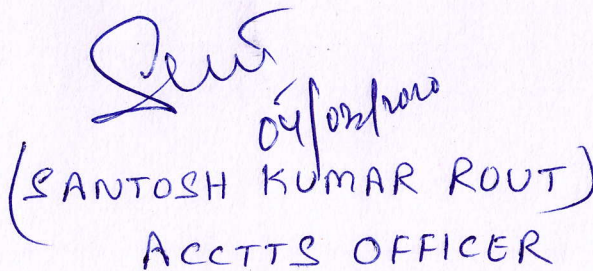 04/03/2020
(SANTOSH KUMAR ROUT)
ACCTTS OFFICER